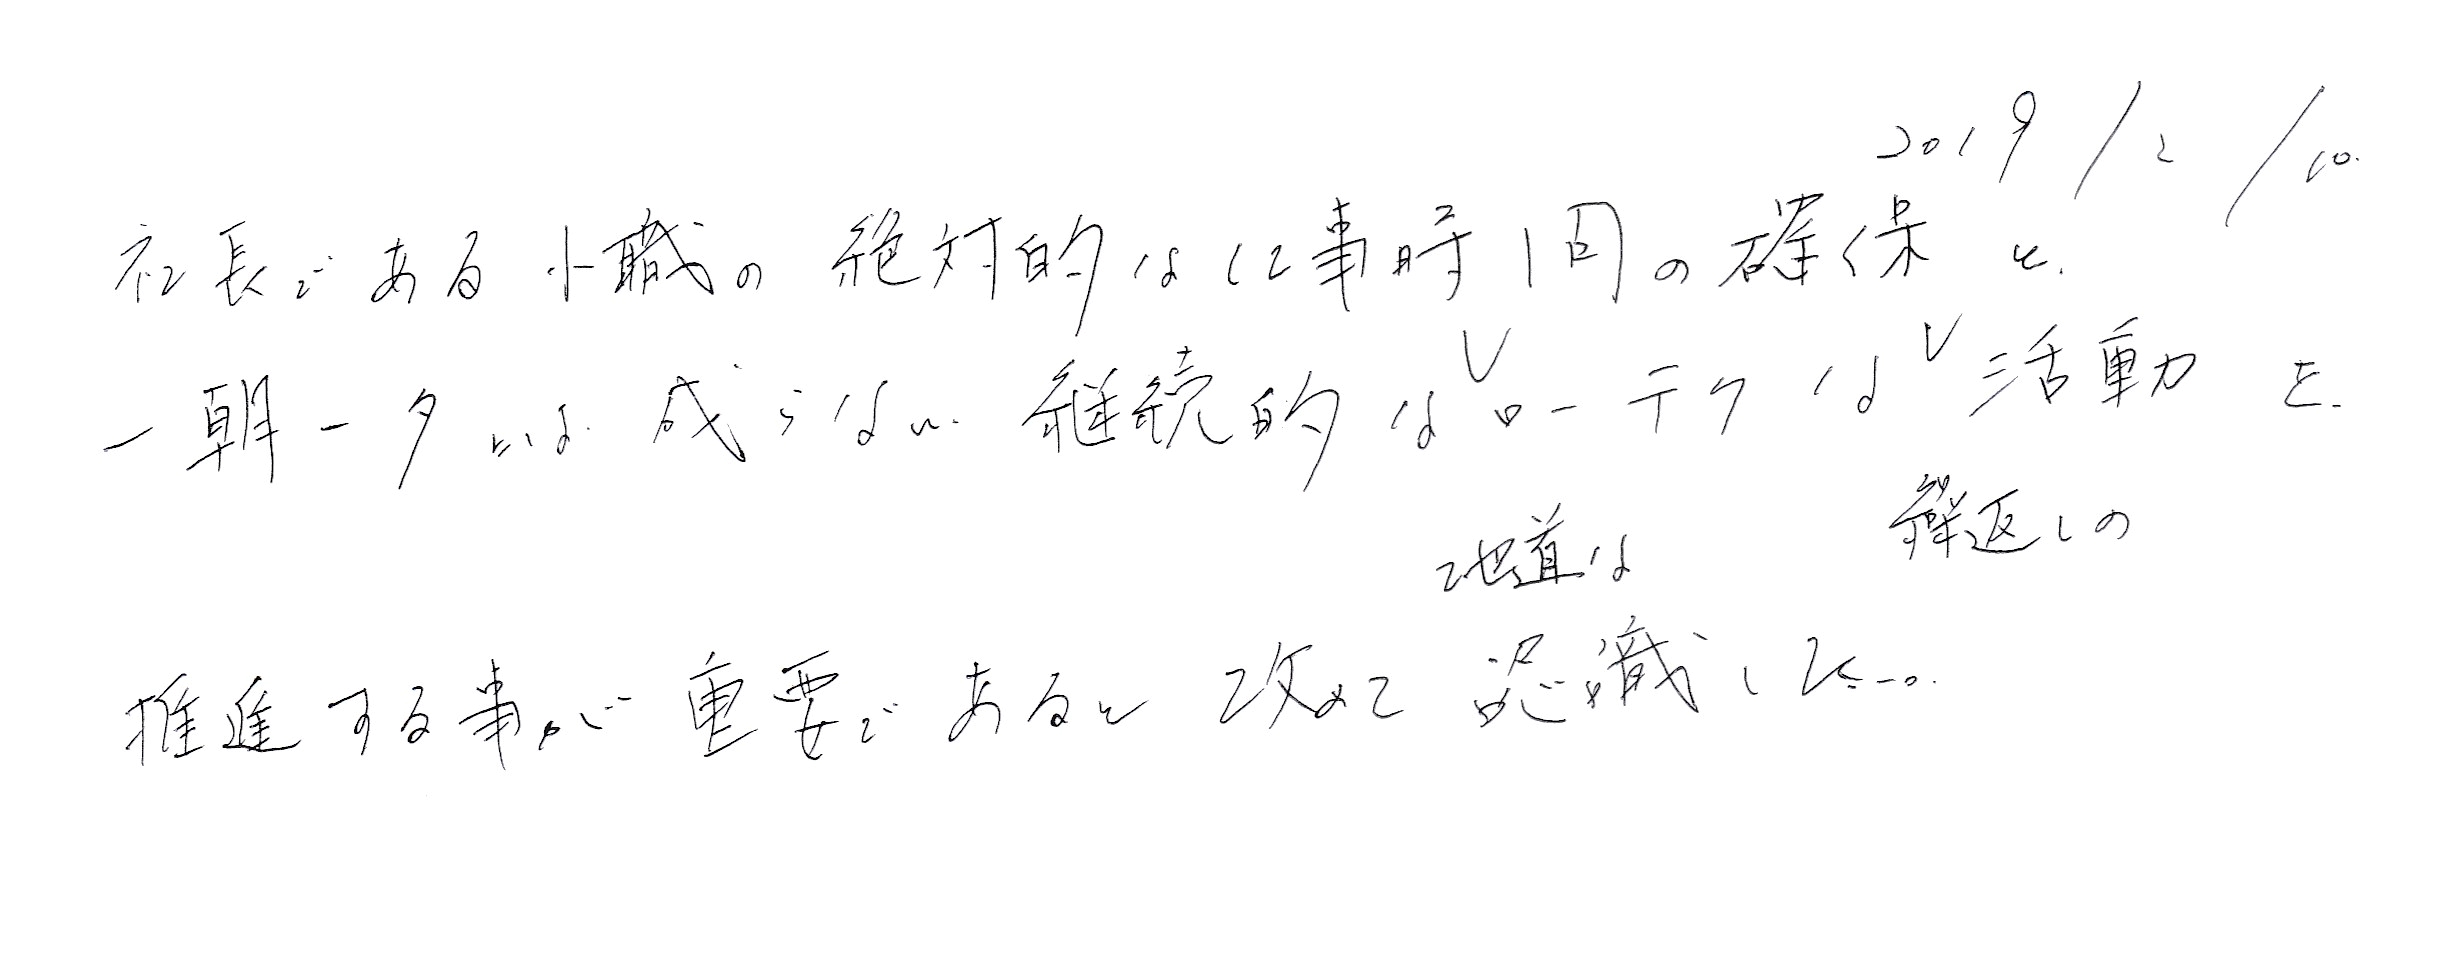 2019/2/10.
社長である小職の絶対的な仕事時間の確保と、
一朝一夕には成らない継続的なローテクな活動を、
地道な 繰返しの
推進する事が重要であると改めて認識した…。